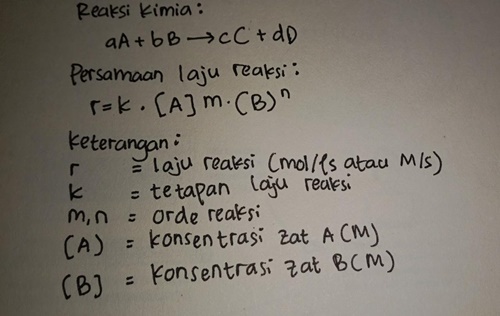 Reaksi kimia:
aA + bB → cC + dD
Persamaan laju reaksi:
r = k . [A] m . (B)ⁿ
Keterangan:
r = laju reaksi (mol/ls atau M/s)
k = tetapan laju reaksi
m,n = orde reaksi
(A) = konsentrasi zat A (M)
[B] = konsentrasi zat B (M)